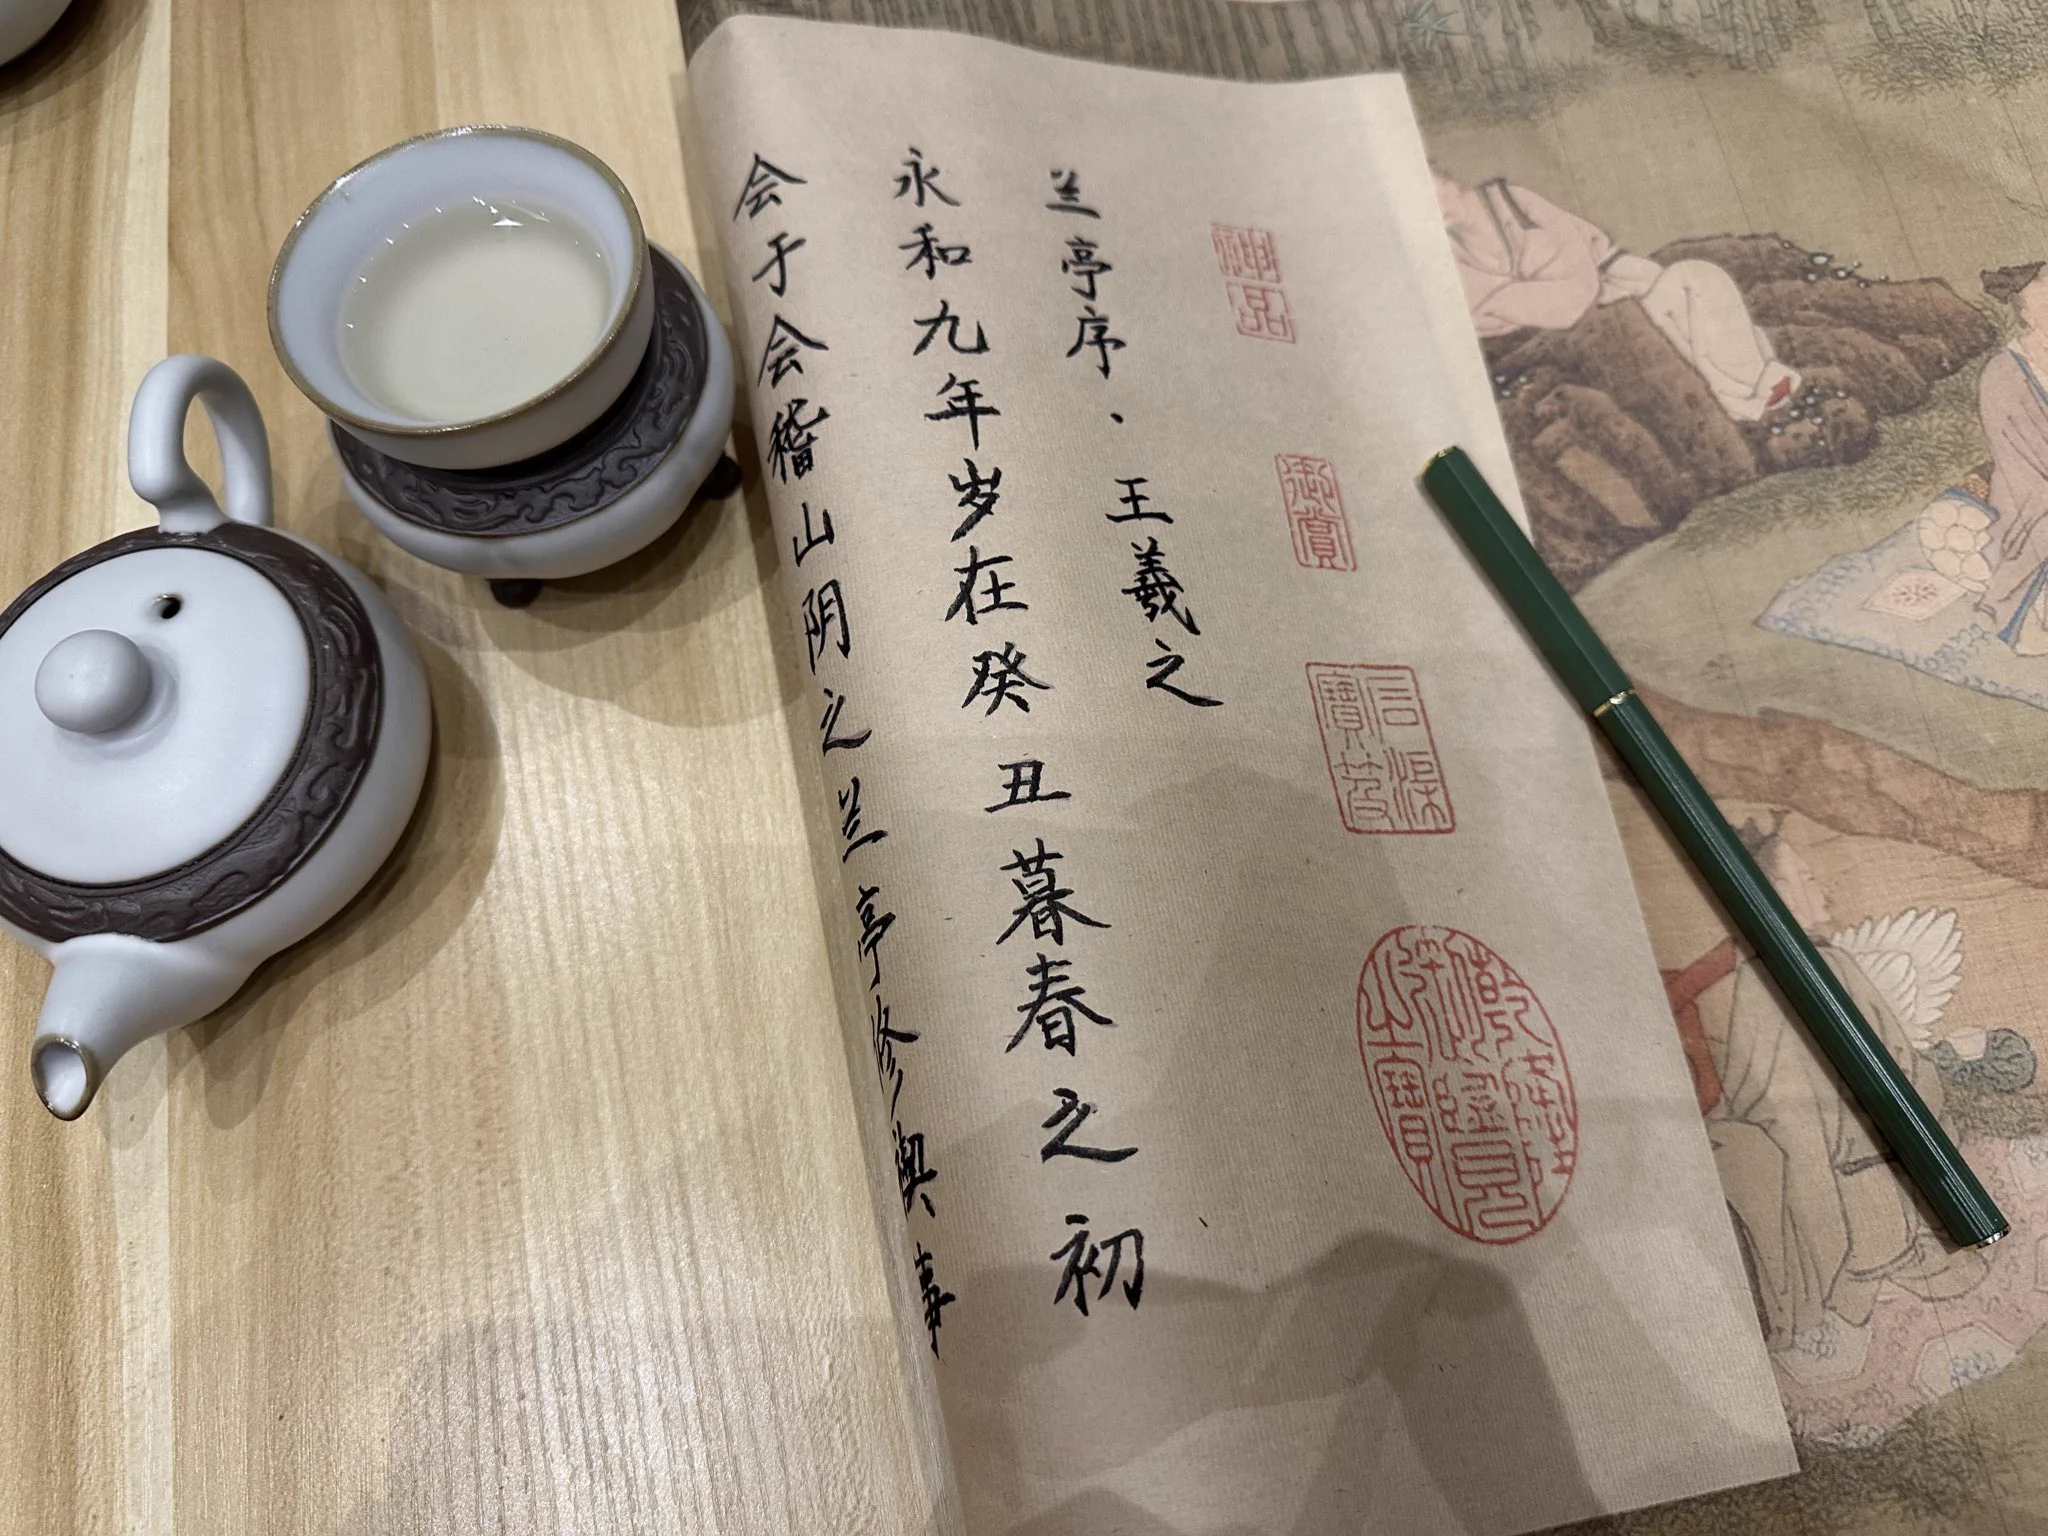 兰亭序·王羲之
永和九年岁在癸丑暮春之初
会于会稽山阴之兰亭修禊事
神品
御赏